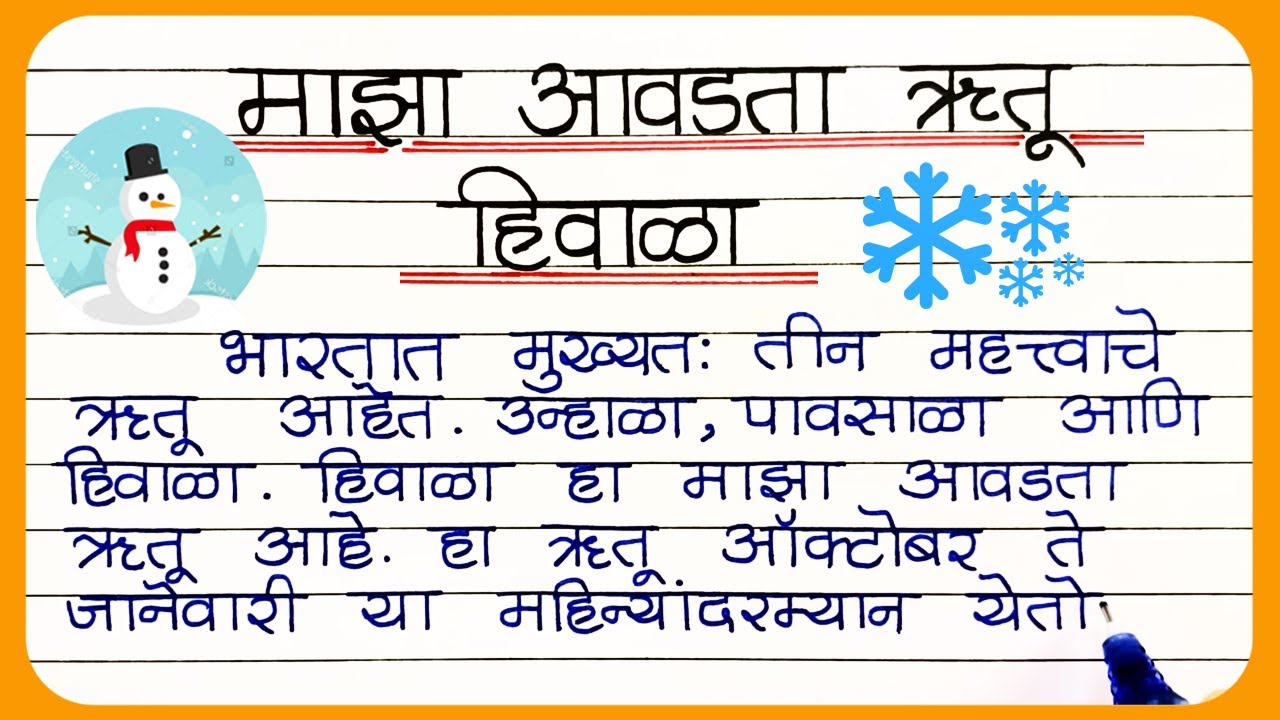 माझा आवडता ऋतू
हिवाळा
भारतात मुख्यतः तीन महत्त्वाचे
ऋतू आहेत. उन्हाळा, पावसाळा आणि
हिवाळा. हिवाळा हा माझा आवडता
ऋतू आहे. हा ऋतू ऑक्टोबर ते
जानेवारी या महिन्यांदरम्यान येतो